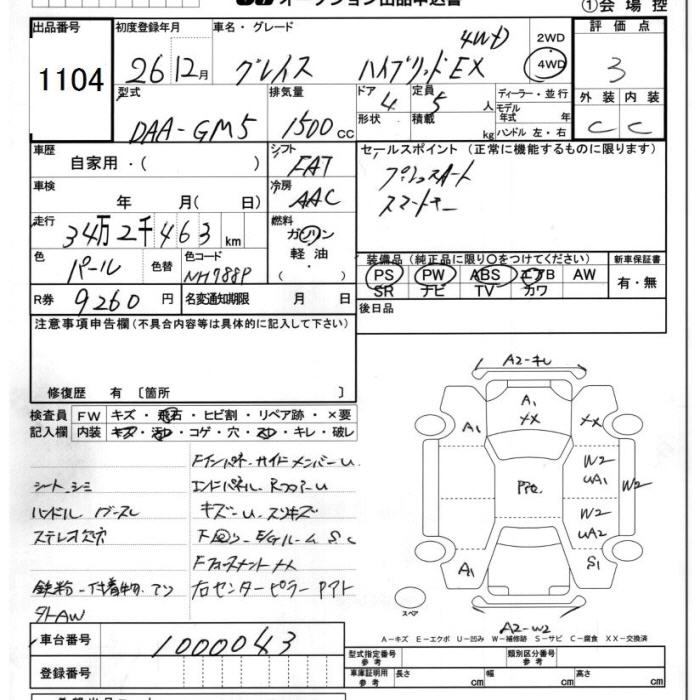 オークション出品申込書
①会場控
出品番号 初度登録年月 車名・グレード 2WD 評価点
1104 26 12月 グレイス ハイブリッドEX 4WD 4WD 3
型式 排気量 ドア 4 定員 5 人 ディーラー・並行 外装 内装
DAA-GM5 1500cc 形状 積載 kg モデル年式 年 ハンドル 左・右 C C
車歴 シフト セールスポイント (正常に機能するものに限ります)
自家用・( ) FAT プッシュスタート
車検 冷房 スマートキー
年 月( 日) AAC
走行 燃料
34万2千463km ガソリン
色 色替 色コード 軽油 装備品 (純正品に限り○をつけてください) 新車保証書
パール NH788P ・( ) PS PW ABS エアB AW 有・無
SR ナビ TV カワ
R券 9260円 名変通知期限 月 日 後日品
注意事項申告欄 (不具合内容等は具体的に記入して下さい)
修復歴 有 〔箇所 〕
検査員 FW キズ・飛石・ヒビ割・リペア跡・×要
記入欄 内装 キズ・汚れ・コゲ・穴・スレ・キレ・破レ
A2-キレ
A1 XX
A1 XX
W2 UA1 W2
W2 UA2
A1 S1
A2-W2
Fインパネ・サイドメンバーU
シート.シミ エンドパネル.RフロアーU
ハンドル
ステレオ欠品 下回り-E/Gルーム SC
鉄粉-付着物.
右センターピラー
社外AW
スペア
A-キズ E-エクボ U-凹み W-補修跡 S-サビ C-腐食 XX-交換済
車台番号 1000043
型式指定番号 参考 類別区分番号 参考
登録番号 車庫証明用 参考 長さ cm 幅 cm 高さ cm